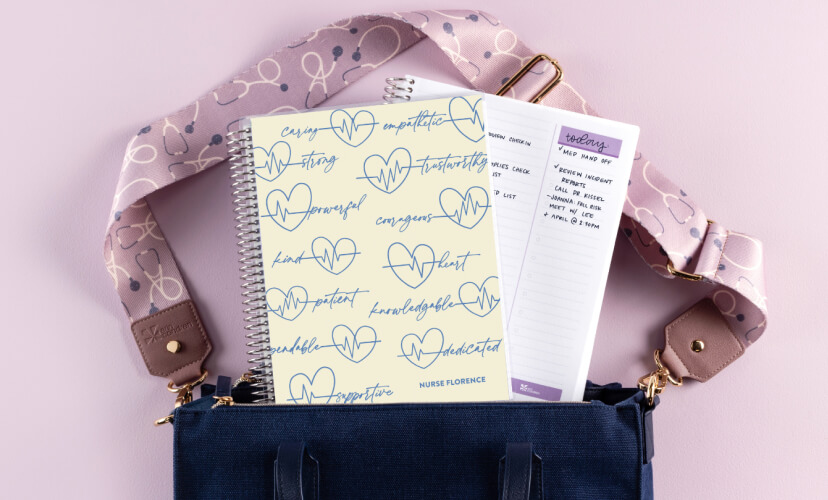 caring empathetic
strong trustworthy
powerful
courageous
kind heart
patient
knowledgable
pendable dedicated
supportive
NURSE FLORENCE
CHECK IN
PPLIES CHECK
IST
ED LIST
today
✓ MED HAND OFF
✓ REVIEW INCIDENT
REPORTS
CALL DR KISSEL
- JOANNA: FALL RISK
MEET W/ LEE
+ APRIL @ 2:30PM